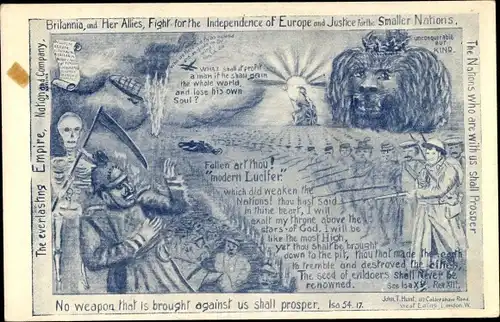 Britannia, and Her Allies, Fight for the Independence of Europe and Justice for the Smaller Nations.
The everlasting Empire, Nation and Company.
The Nations who are with us shall Prosper
unconquerable
BUT
KIND.
What shall it profit
a man if he shall gain
the whole world,
and lose his own
Soul?
Fallen art thou!
"modern Lucifer"
which did weaken the
Nations! thou hast said
in thine heart, I will
exalt my throne above the
stars of God, I will be
like the most High,
yet thou shalt be brought
down to the pit, thou that made the earth
to tremble and destroyed the cities,
The seed of evildoers shall Never be
renowned.
See Isa XIV. Rev XIII.
No weapon that is brought against us shall prosper. Isa 54. 17.
John T. Hunt, Road
West Ealing, London. W.